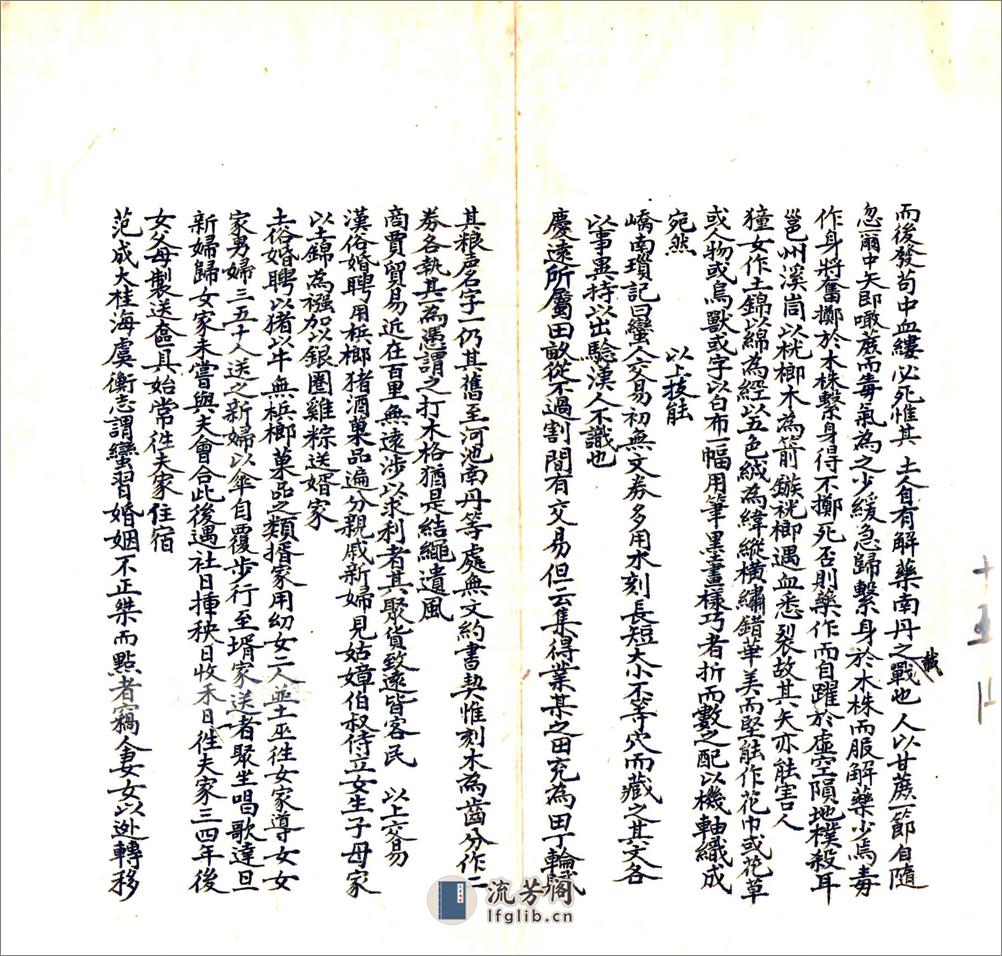 而後發苟中血縷必死惟其土人自有解藥南丹之戰也人以甘蔗一節自隨
忽爾中矢即噉蔗而毒氣為之少緩急歸繫身於木株而服解藥少焉毒
作身將奮擲於木株繫身得不擲死否則藥作而自躍於虛空隕地樸殺耳
邕州溪峝以桄榔木為箭鏃桄榔遇血悉裂故其矢亦能害人
獞女作土錦以綿為經以五色絨為緯縱橫繡錯華美而堅能作花巾或花草
或人物或鳥獸或字以白布一幅用筆墨畫樣巧者折而數之配以機軸織成
宛然　以上技能
嶠南瑣記曰蠻人交易初無文券多用水刻長短大小不等穴而藏之其文各
以事異持以出驗漢人不識也
慶遠所屬田畝從不過割間有交易但云集得業某之田充為田丁輪賦
其粮声名字一仍其舊至河池南丹等處無文約書契惟刻木為齒分作二
券各執其一為憑謂之打木格猶是結繩遺風
商賈貿易近在百里無遠涉以求利者其聚貨致遠皆客民　以上交易
漢俗婚聘用梹榔猪酒菓品遍分親戚新婦見姑嫜伯叔侍立女生子母家
以土錦為襁加以銀圈雞粽送婿家
土俗婚聘以猪以牛無梹榔菓品之類揟家用幼女二人並土巫徃女家導女女
家男婦三五十人送之新婦以傘自覆步行至壻家送者聚坐唱歌達旦
新婦歸女家未嘗與夫會合此後遇社日揷秧日收禾日徃夫家三四年後
女父母製送奩具始常徃夫家住宿
范成大桂海虞衡志謂蠻習婚姻不正桀而點者竊人妻女以迯轉移
截
十五上
流芳阁
lfglib.cn